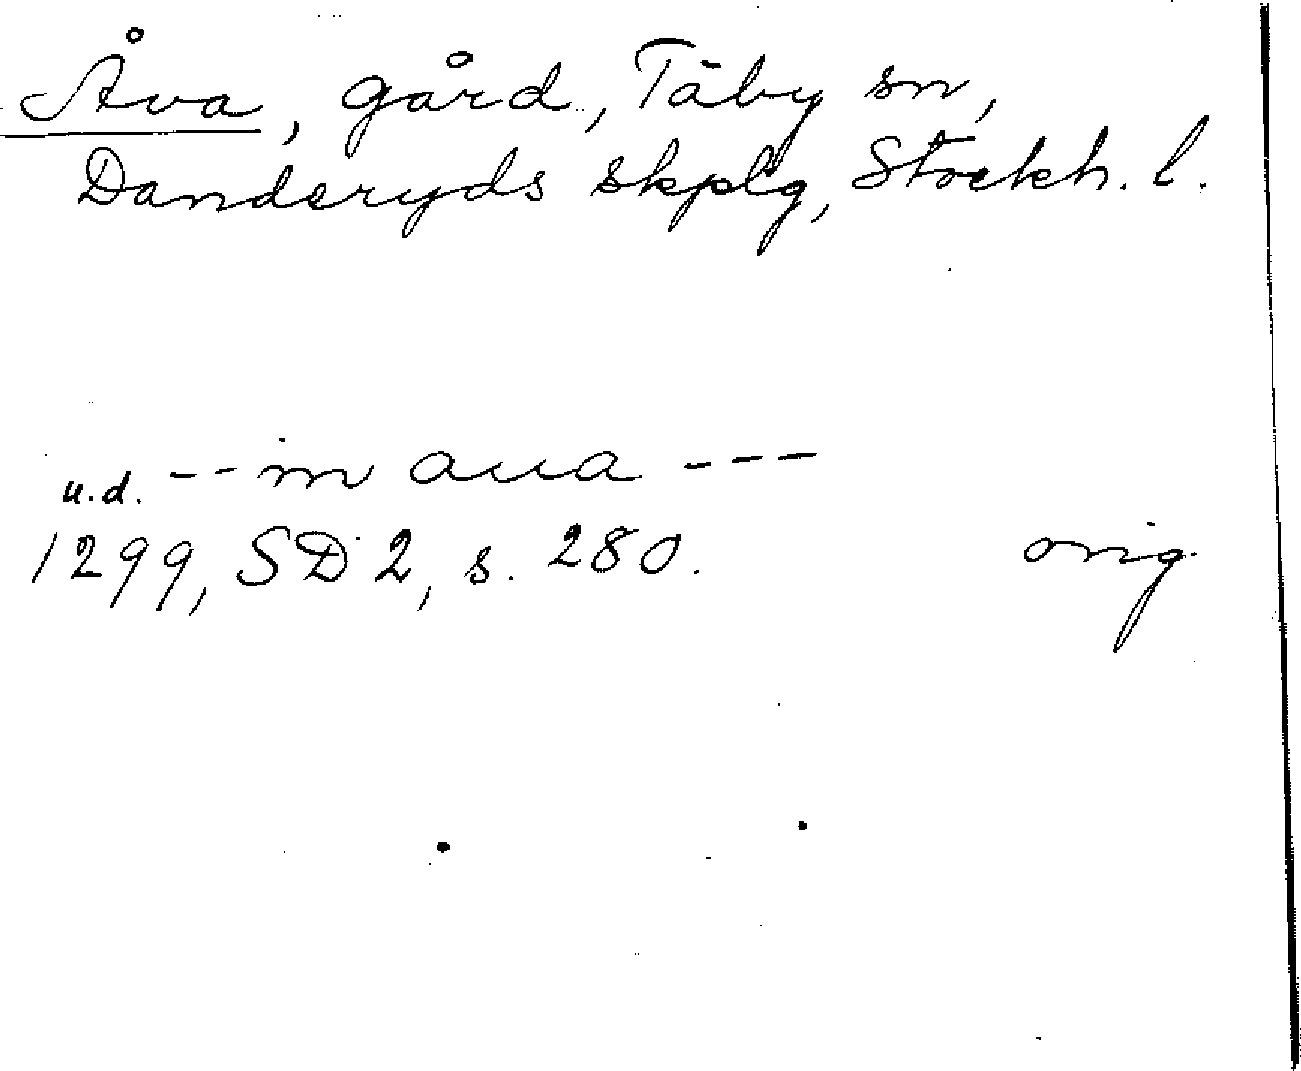 Åva, gård, Täby sn,
Danderyds skplg, Stockh. l.
u.d. -- in aua ---
1299, SD 2, s. 280. orig.